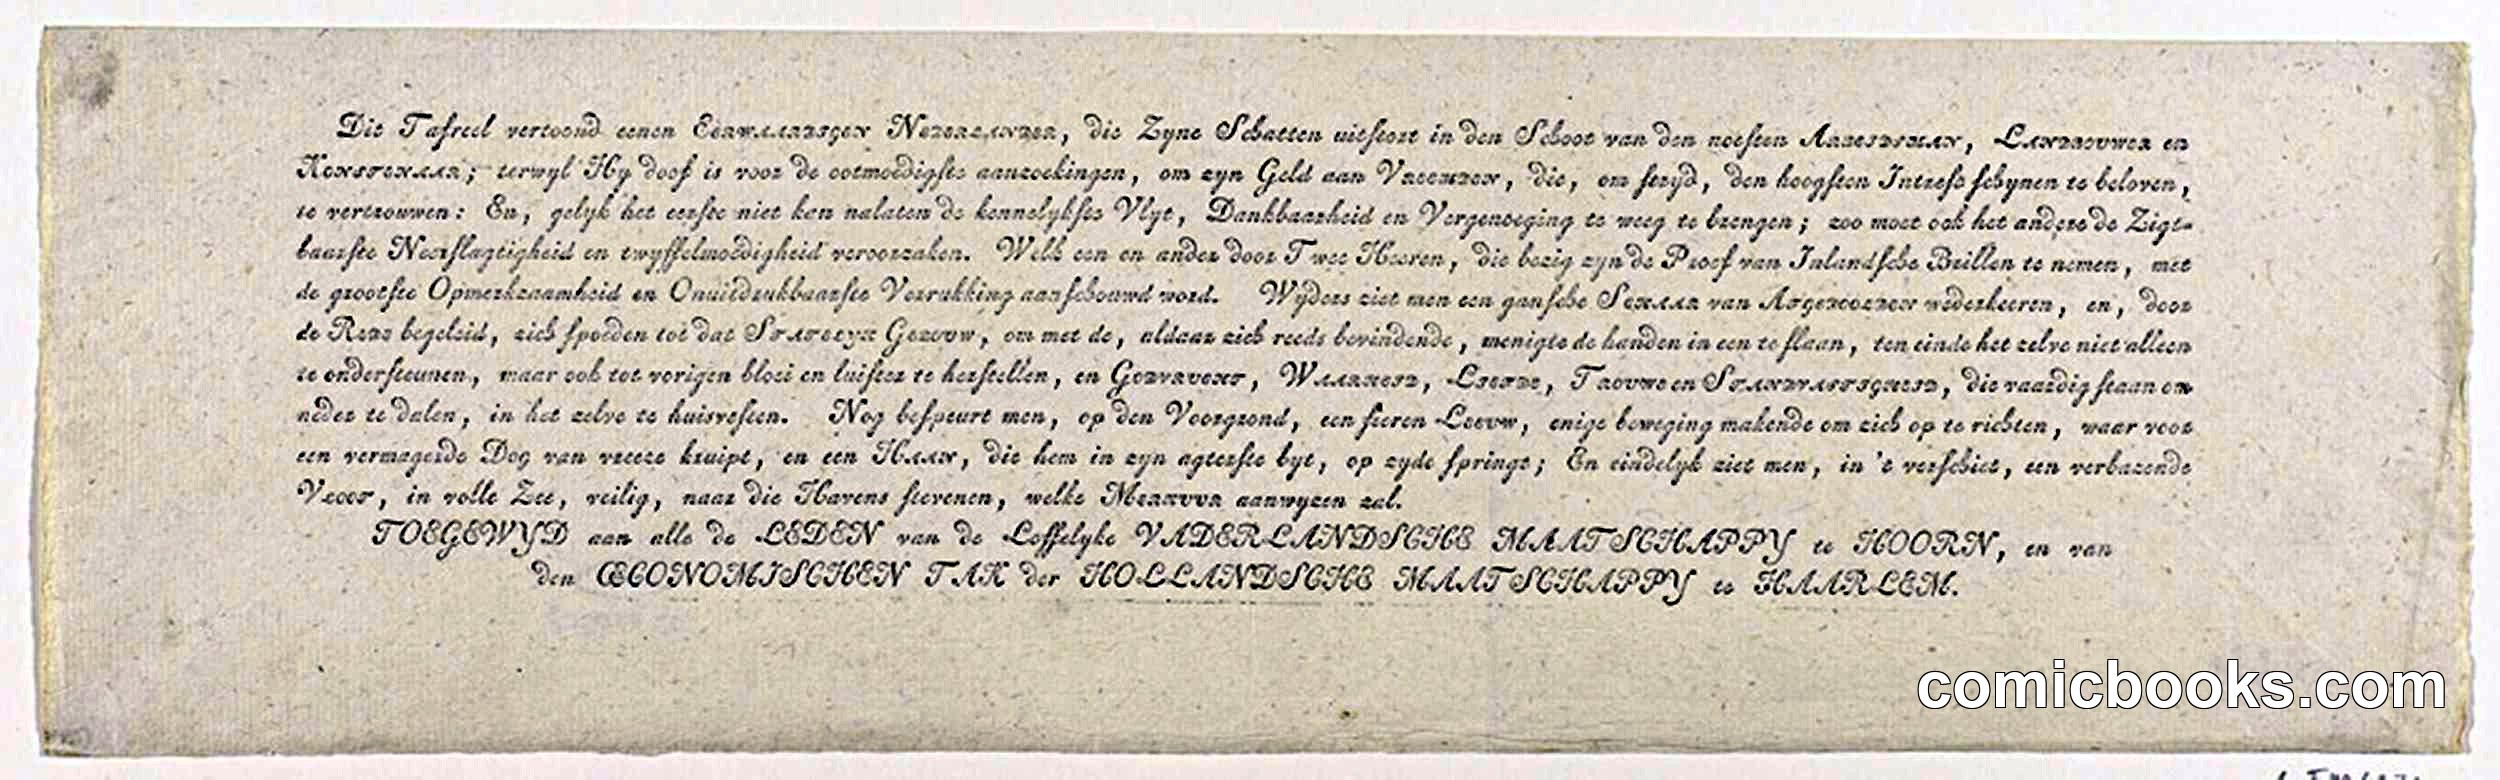 Dit Tafreel vertoond eenen EERWAARDIGEN NEDERLANDER, die Zyne Schatten uitstort in den Schoot van den noesten ARBEIDSMAN, LANDBOUWER en
KONSTENAAR; terwyl Hy doof is voor de ootmoedigste aanzoekingen, om zyn Geld aan VREEMDEN, die, om stryd, den hoogsten Intrest schynen te beloven,
te vertrouwen: En, gelyk het eerste niet kan nalaten de kennelykste Vlyt, Dankbaarheid en Vergenoeging te weeg te brengen; zoo moet ook het andere de Zigt-
baarste Neerslagtigheid en twyffelmoedigheid veroorzaken. Welk een en ander door Twee Heeren, die bezig zyn de Proef van Inlandsche Brillen te nemen, met
de grootste Opmerkzaamheid en Onuitdrukbaarste Verrukking aanschouwd word. Wyders ziet men een gansche SCHAAR van AFGEWORPEN wederkeeren, en, door
de REDE begeleid, zich spoeden tot dat STATELYK GEBOUW, om met de, aldaar zich reeds bevindende, menigte de handen in een te slaan, ten einde het zelve niet alleen
te ondersteunen, maar ook tot vorigen bloei en luister te herstellen, en GODVRUCHT, WAARHEID, LIEFDE, TROUWE en STANDVASTIGHEID, die vaardig staan om
neder te dalen, in het zelve te huisvesten. Nog bespeurt men, op den Voorgrond, een fieren LEEUW, enige beweging makende om zich op te richten, waar voor
een vermagerde DOG van vreeze kruipt, en een HAAN, die hem in zyn agterste byt, op zyde springt; En eindelyk ziet men, in 't verschiet, een verbazende
VLOOT, in volle Zee, veilig, naar die Havens stevenen, welke MERKUUR aanwyzen zal.
TOEGEWYD aan alle de LEDEN van de Loffelyke VADERLANDSCHE MAATSCHAPPY te HOORN, en van
den ŒCONOMISCHEN TAK der HOLLANDSCHE MAATSCHAPPY te HAARLEM.
comicbooks.com